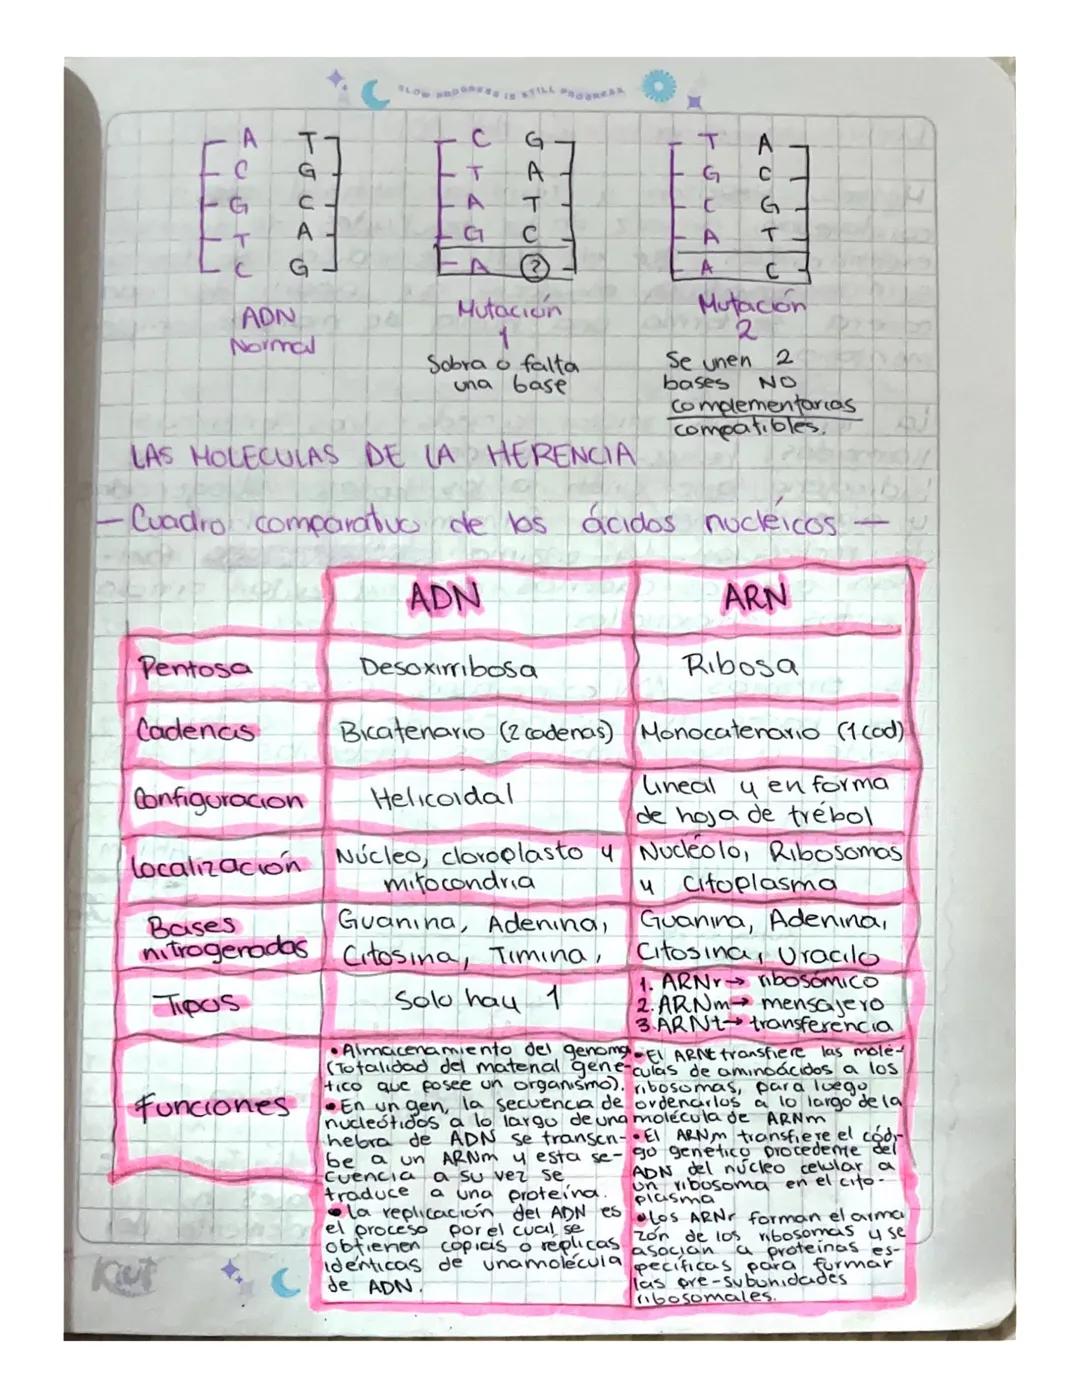 SLOW PROGRESS IS STILL PROGRESS
A T
C G
G C
T A
C G
ADN
Normal
C G
T A
A T
G C
A ?
Mutación
1
Sobra o falta
una base
T A
G C
C G
A T
A C
Mutación
2
Se unen 2
bases NO
complementarias
compatibles.
LAS MOLECULAS DE LA HERENCIA
- Cuadro comparativo de los ácidos nucléicos -
ADN ARN
Pentosa Desoxirribosa Ribosa
Cadenas Bicatenario (2 cadenas) Monocatenario (1 cad)
Configuracion Helicoidal
Lineal y en forma
de hoja de trébol
Localización
Núcleo, cloroplasto y
mitocondria
Nucléolo, Ribosomas
y Citoplasma
Bases
nitrogenadas
Guanina, Adenina,
Citosina, Timina,
Guanina, Adenina,
Citosina, Uracilo
Tipos Solo hay 1
1. ARNr→ ribosómico
2. ARNm→ mensajero
3. ARNt→ transferencia
Funciones
• Almacenamiento del genoma
(Totalidad del material gené-
tico que posee un organismo).
• En un gen, la secuencia de
nucleótidos a lo largo de una
hebra de ADN se transcri-
be a un ARNm y esta se-
cuencia a su vez se
traduce a una proteína.
• La replicación del ADN es
el proceso por el cual se
obtienen copias o réplicas
idénticas de una molécula
de ADN.
• El ARNt transfiere las molé-
culas de aminoácidos a los
ribosomas, para luego
ordenarlos a lo largo de la
molécula de ARNm
• El ARNm transfiere el códi-
go genético procedente del
ADN del núcleo celular a
un ribosoma en el cito-
plasma
• Los ARNr forman el arma
zón de los ribosomas y se
asocian a proteínas es-
pecíficas para formar
las pre-subunidades
ribosomales.
Kiut